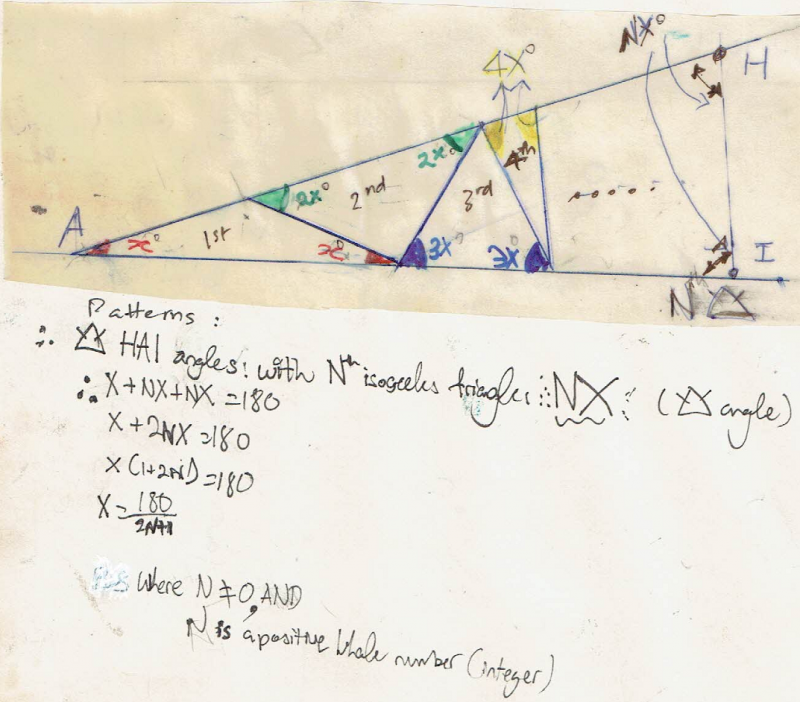 NX°
H
4X°
4th
2x°
2x°
2nd
3rd
.....
A
x°
1st
x°
3X°
3X°
I
Nth
Patterns:
∴ △ HAI angles: with Nth isosceles triangle: NX: (△ angle)
∴ X+NX+NX=180
X+2NX=180
X(1+2N)=180
X=180/2N+1
Where N≠0, AND
N is a positive Whole number (integer)